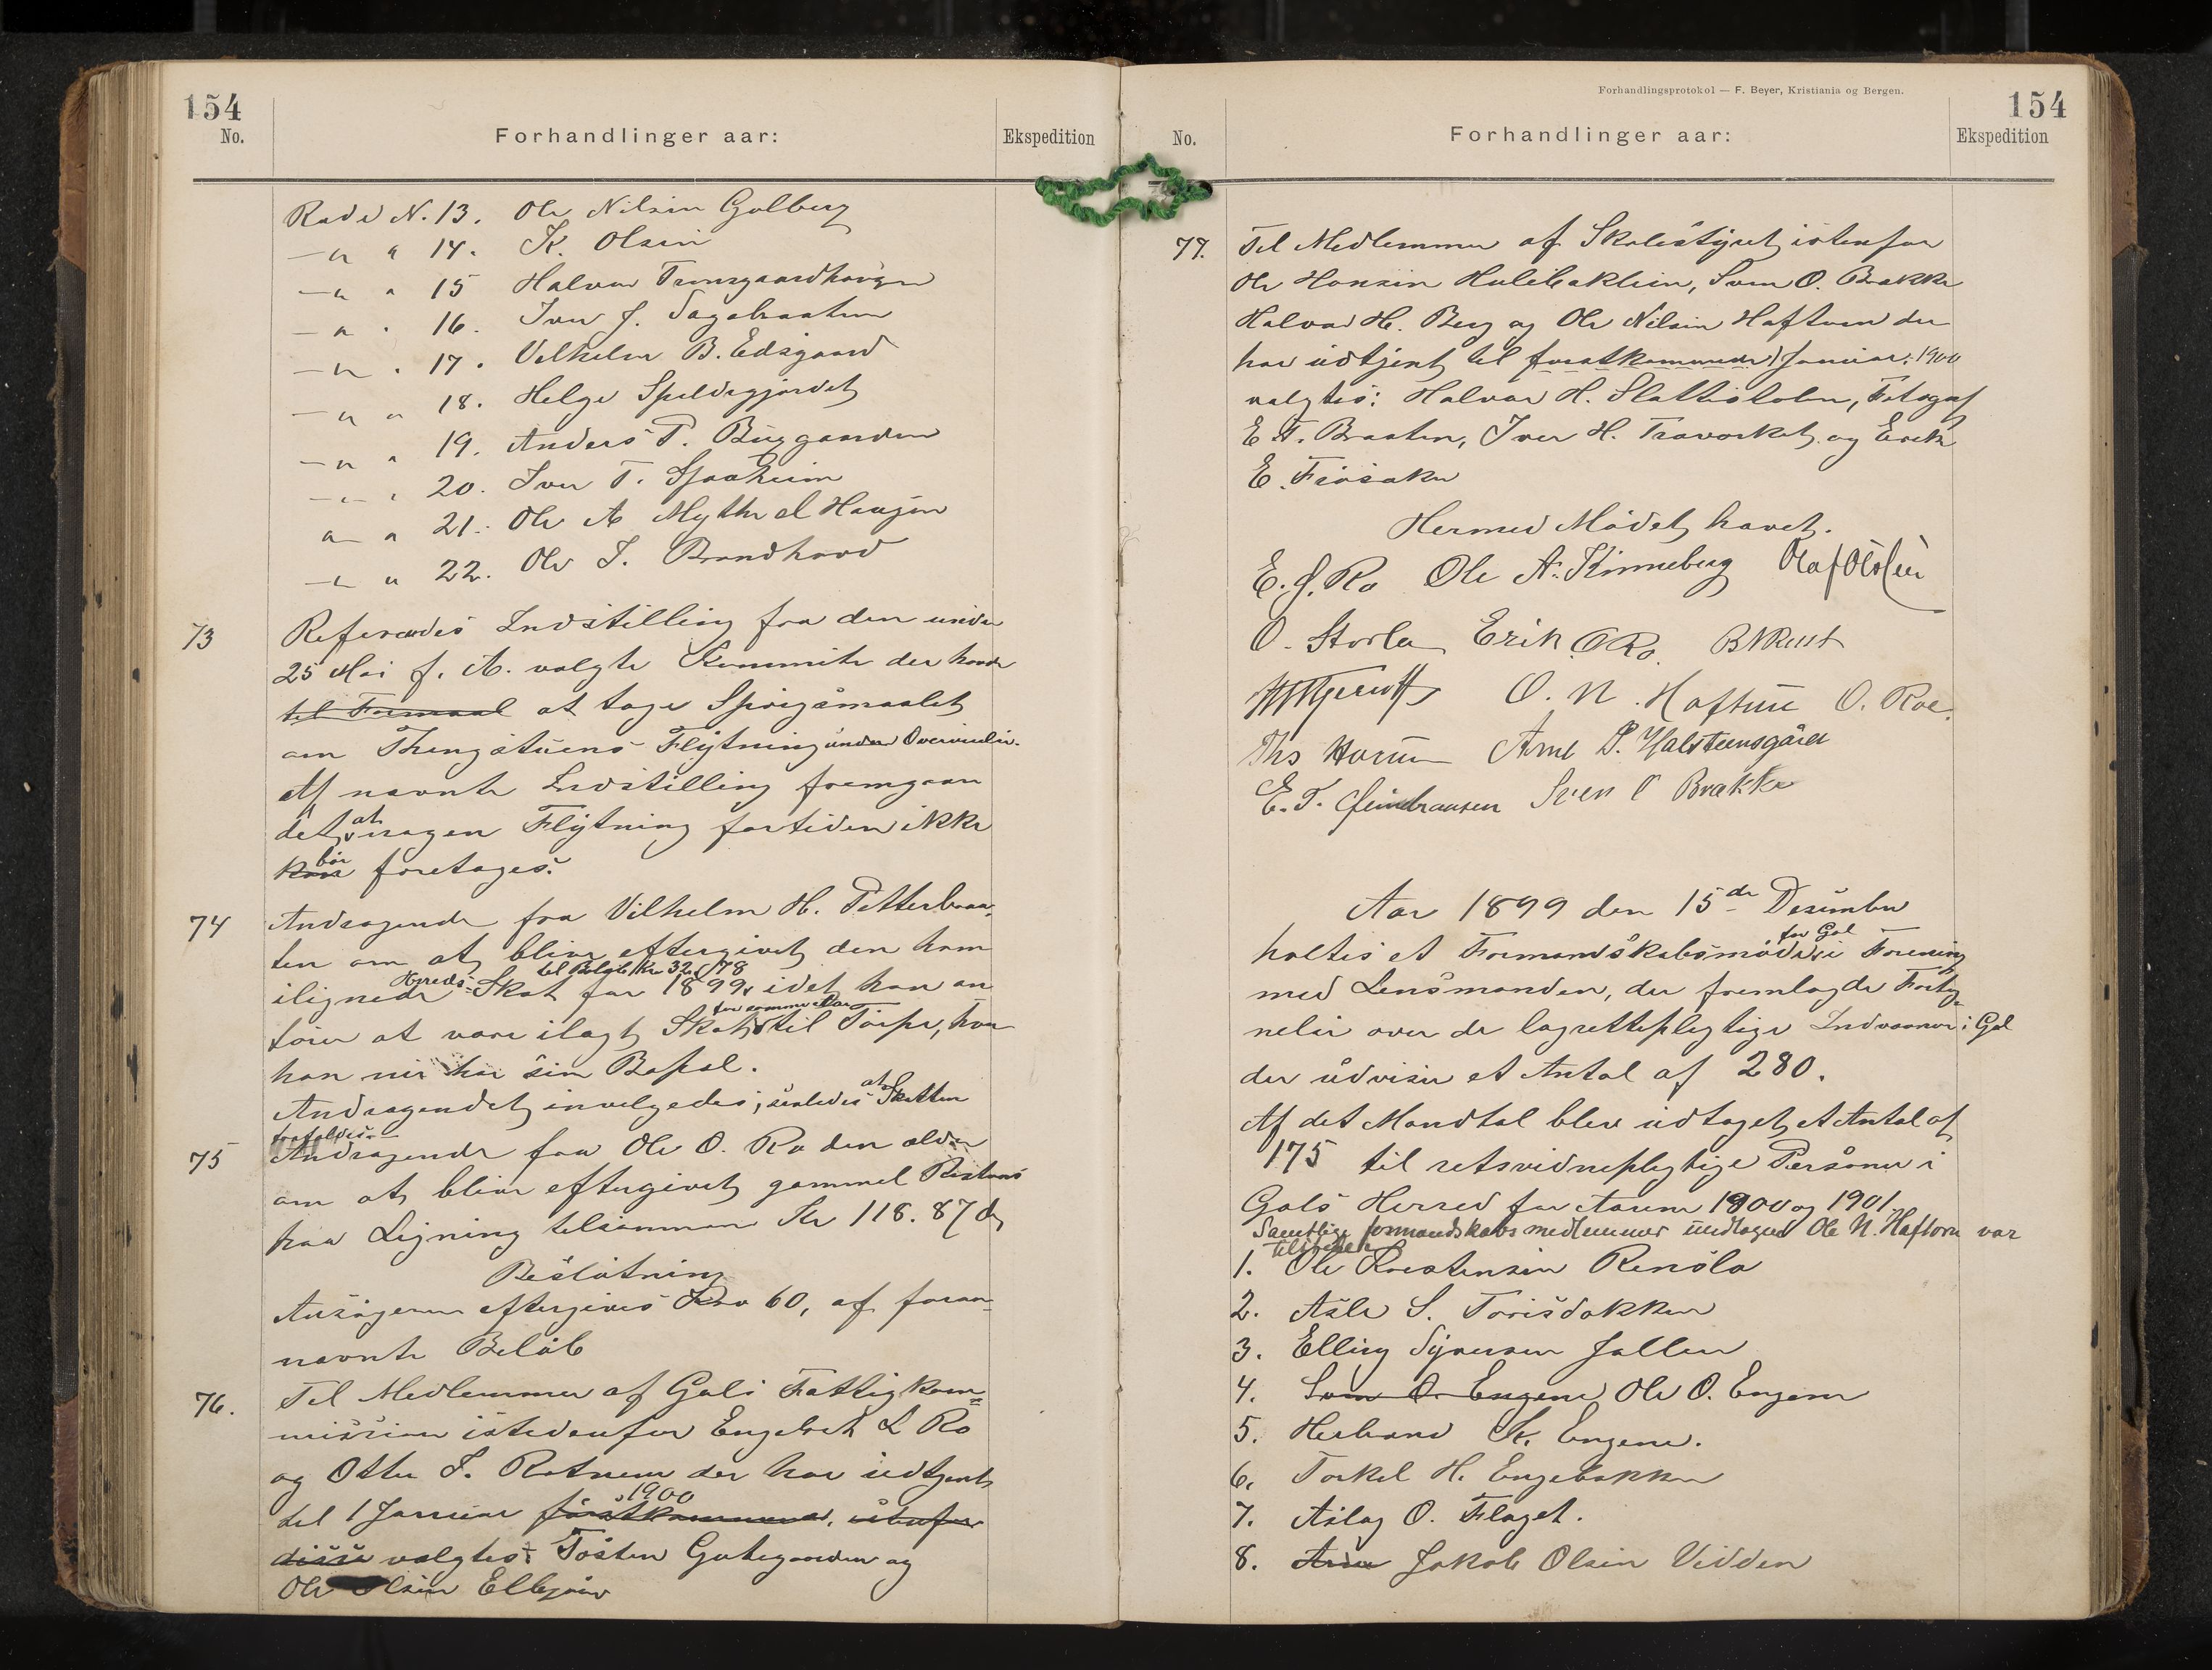 154
No.
Forhandlinger aar:
Ekspedition
Rode N. 13. Ole Nilsen Golberg
—„ „ 14. K. Olsen
—„ „ 15 Halvor
—„ „ 16. Iver J. Sagabraaten
—„ „ 17. Vilhelm B. Eidsgaard
—„ „ 18. Helge Speldregjordet
—„ „ 19. Anders P. Byggarden
—„ „ 20. Iver T.
„ „ 21. Ole A Haugen
—„ „ 22. Ole J. Brandhovd
73
Refereredes Indstilling fra den under
25 Mai f. A. valgte Kommite der havde
til Formaal at tage Spörgsmaalet
om Thingstuens Flytning under Overveielse.
Af nævnte Indstilling fremgaar
det, at nogen Flytning fortiden ikke
kan bör foretages.
74
Andragende fra Vilhelm H. Petterbraa-
ten om at blive eftergivet den ham
til Belöb Kr 32,78
ilignede Herreds-Skat for 1899, idet han an
for samme Aar
förer at være ilagt Skat til Torpe, hvor
han nu har sin Bopæl.
Andragendet invilgedes, saaledes at Skatten
frafaldes.
75
Andragende fra Ole O. Ro den ældre
om at blive eftergivet gammel Restans
paa Ligning tilsammen Kr 118.87
Beslutning
Ansögeren eftergives Kro 60, af foran-
nævnte Belöb
76.
Til Medlemmer af Gols Fattigkom=
mission istedenfor Engebret L Ro
og Otter J. Rotneim der har udtjent
til 1 Januar förstkommende 1900, istenfor
disse valgtes: Tosten Gutegarden og
Ole Olsen
Forhandlingsprotokol — F. Beyer, Kristiania og Bergen.
154
No.
Forhandlinger aar:
Ekspedition
77.
Til Medlemmer af Skolestyret istenfor
Ole Hansen Hulebakken, Sven O. Brakke
Halvor H. Berg og Ole Nilsen Haftorn der
har udtjent til forstkommende 1 Januar 1900
valgtes: Halvor H. Slettestolen, Fotograf
E T. Braaten, Iver H. og Erik
E. Frösaker
Hermed Mödet hævet.
E. J. Ro Ole A. Kinneberg Olaf Olsen
O. Storla Erik O Ro.
O. N. Haftorn O. Roe.
Ths Horum Arne P. Halsteensgård
E. T. Sven O Brakke
Aar 1899 den 15de Desember
holtes et Formandskabsmöde for Gol i Forening
med Lensmanden, der fremlagde Forteg-
nelse over de lagrettepligtige Indvaanere i Gol
der udviser et Antal af 280.
Af det Mandtal blev udtaget et Antal af
175 til retsvidnepligtige Personer i
Gols Herred for Aarene 1900 og 1901.
Samtlige formandskabsmedlemmer undtagen Ole N. Haftorn var
tilstede
1. Ole Kristensen Rensla
2. Asle S. Torisdokken
3. Elling Syversen Jallen
4. Sven O. Engene Ole O. Engene
5. Herbrand K. Engene.
6. Torkel H. Engebakken
7. Aslag O. Flaget.
8. Arne Jakob Olsen Vidden